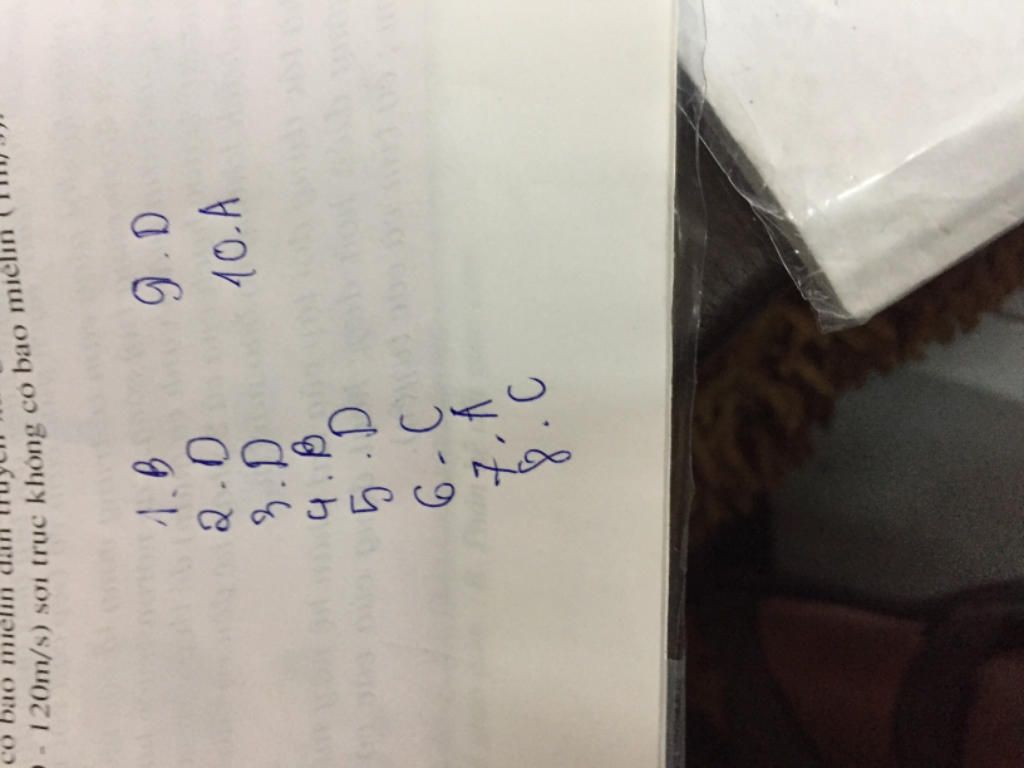 có bao miêlin dẫn truyền
- 120m/s) sợi trục không có bao miêlin (1m/s).
1.B
2.D
3.D
4.B
5.D
6-C
7.A
8.C
9.D
10.A